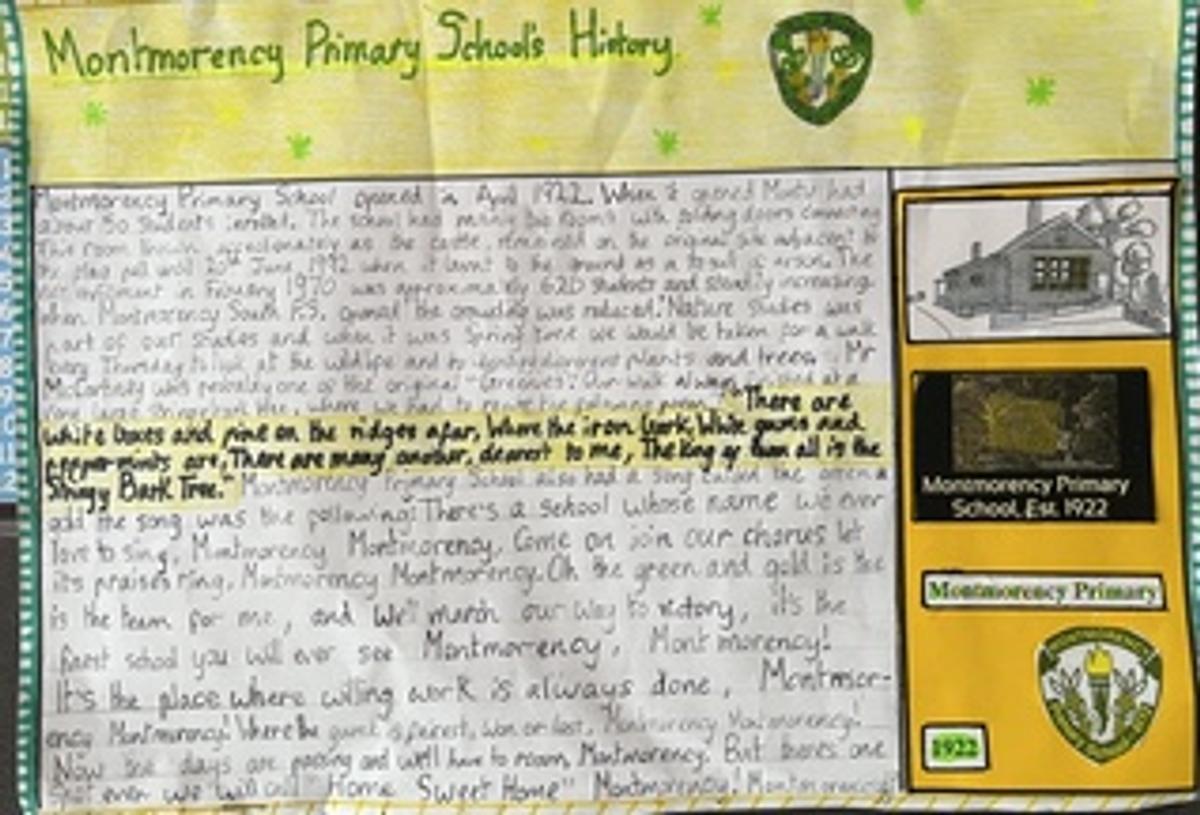 Montmorency Primary School's History
Montmorency Primary School opened in April 1922. When it opened Monty had
about 50 students enrolled. The school had mainly two rooms with folding doors connecting
This room known affectionately as the castle, remained on the original site adjacent to
the play until 20th June, 1992 when it burnt to the ground as a result of arson. The
enrollment in February 1970 was approximately 620 students and steadily increasing.
when Montmorency South P.S. opened the crowding was reduced. "Nature Studies was
part of our studies and when it was Spring time we would be taken for a walk
every Thursday to look at the wildlife and to plants and trees. Mr
McCarthy was probably one of the original "Greenies". Our walk always at a
very large Stringybark tree, where we had to recite the following poem: "There are
white boxes and pine on the ridges afar, Where the iron bark, White gums and
peppermints are, There are many another, dearest to me, The king of them all is the
Stringy Bark Tree."
Montmorency Primary School also had a song called the
gold the song was the following: There's a school whose name we ever
love to sing, Montmorency Montmorency. Come on join our chorus let
its praises ring, Montmorency Montmorency. Oh the green and gold is the
is the team for me, and We'll march our way to victory, it's the
finest school you will ever see Montmorency, Montmorency!
It's the place where willing work is always done, Montmor-
ency Montmorency! Where the game is fairest, won or lost, Montmorency Montmorency!
Now the days are passing and we'll have to roam, Montmorency. But there's one
spot even we will call "Home Sweet Home" Montmorency! Montmorency!
Montmorency Primary
School, Est. 1922
Montmorency Primary
1922